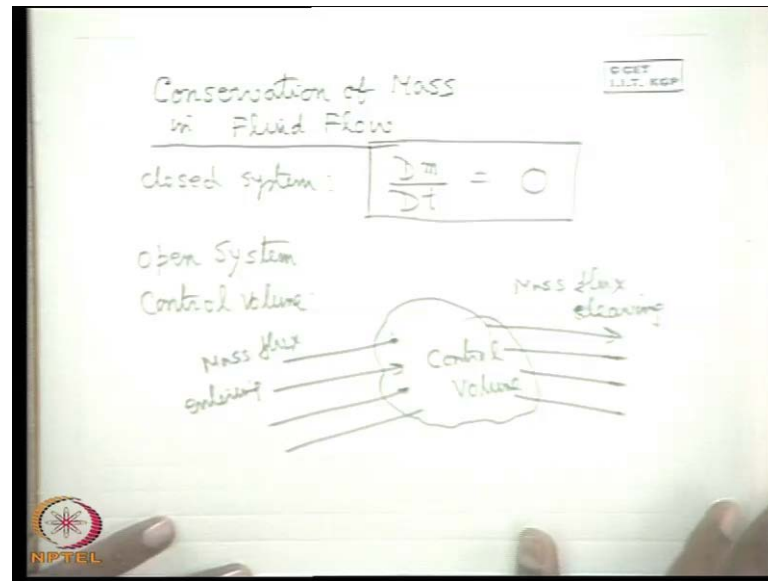 Conservation of Mass
in Fluid Flow
© CET
I.I.T. KGP
closed system:
Dm
Dt
= 0
open System
Control Volume:
Mass flux
entering
Control
Volume
Mass flux
leaving
NPTEL